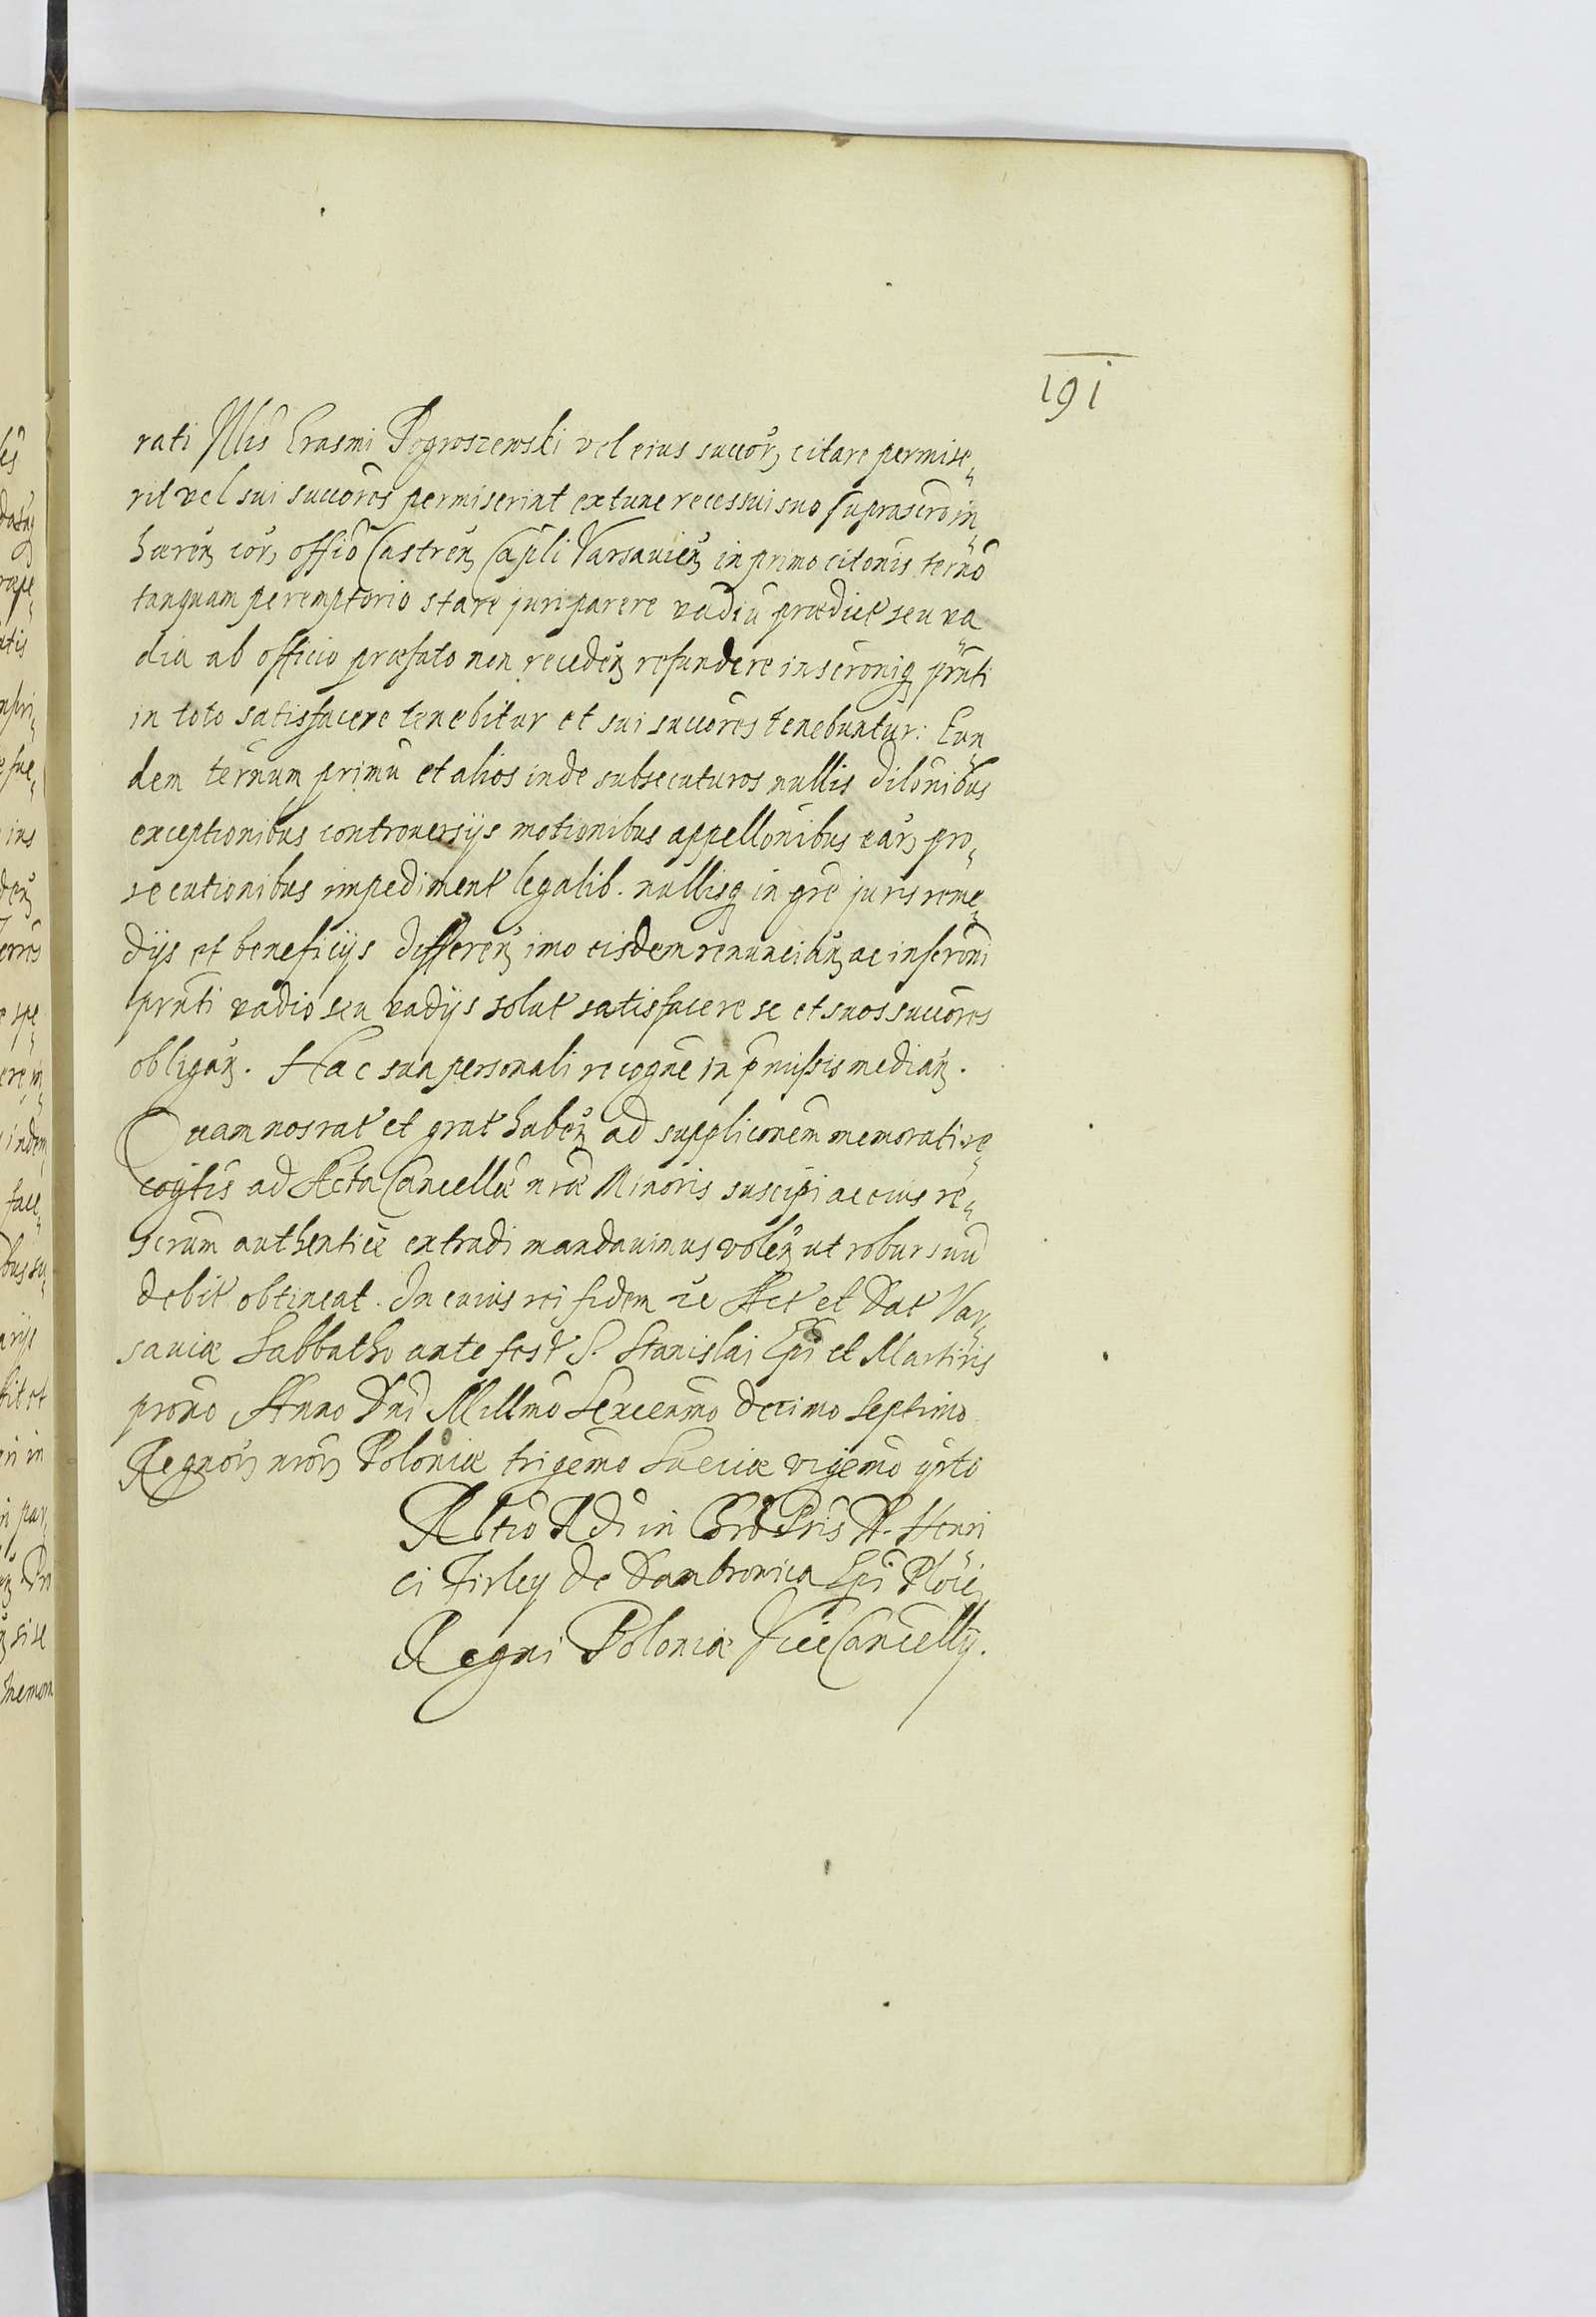 191
rati Nlis Erasmi Pogroszewski vel eius succor, citare permise„
rit vel sui succores permiserint extunc recessui suo suprascro in„
hæreñ cor, offio Castreñ Capli Varsavieñ in primo citonis termo
tanquam peremptorio stare juri parere vadiū prædict seu va„
dia ab officio præfato non recedeñ refundere inscroniq prnti
in toto satisfacere tenebitur et sui succores tenebuntur: Eun„
dem ternum primū et alios inde subsecuturos nullis dilonibus
exceptionibus controuersijs motionibus appellonibus ear, pro„
secutionibus impediment legalib. nullisq in gre juris reme„
dijs et beneficijs differeñ imo eisdem renunciañ ac inscroni
prnti vadio seu vadijs solut satisfacere se et suos succores
obligañ. Hac sua personali recogne in pmissis mediañ.
Quam nos rat et grat habeñ ad suppliconem memorati re„
cogtis ad Acta Cancellæ nræ Minoris suscipi ac eius re„
scrum authentice extradi mandauimus voleñ ut robur suū
debit obtineat. In cuius rei fidem &c Act et Dat Var„
sauiæ Sabbatho ante fest S. Stanislai Epi et Martiris
prono Anno Dni Millmo Sexcenmo decimo septimo
Regnor, nror, Poloniæ trigemo Sueciæ vigemo qrto
Rltio Rdi in Chro Pris D. Henri„
ci Firley de Dambrowica Epi Plocen
Regni Poloniæ ViceCancellij.